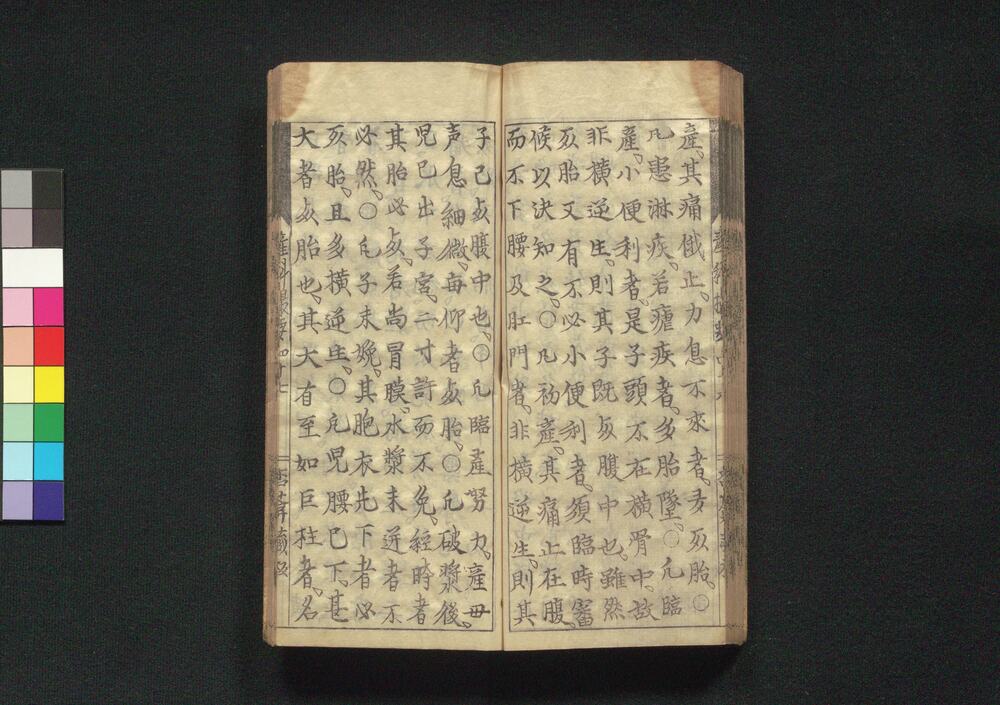 産其痛俄止力息不來者多死胎○
凡患淋疾若瘧疾者多胎墜○凡臨
産小便利者是子頭不在横骨中故
非横逆生則其子既死腹中也雖然
死胎又有不必小便利者須臨時審
候以決知之○凡初産其痛止在腹
而不下腰及肛門者非横逆生則其
子已死腹中也○凡臨産努力産母
声息細微每仰者死胎○凡破漿後
児已出子宮二寸許而不免經時者
其胎必死若尚冒膜水漿未迸者不
必然○凡子未娩其胞衣先下者必
死胎且多横逆生○凡児腰已下甚
大者死胎也其大有至如巨柱者名